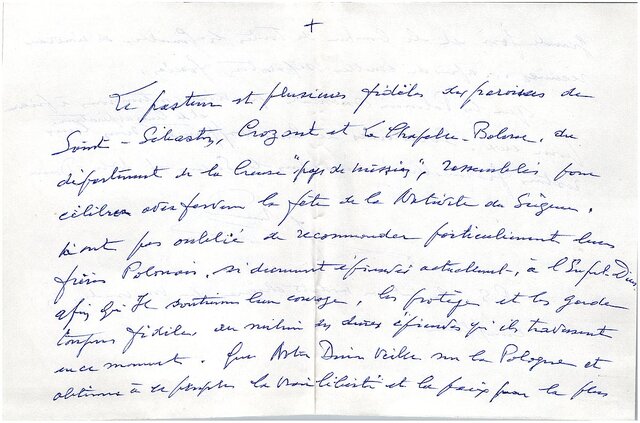 +
Le pasteur et plusieurs fidèles des paroisses de
Saint-Sébastien, Crozant et la Chapelle-Baloue, du
département de la Creuse "pays de mission", rassemblés pour
célébrer avec ferveur la fête de la Nativité du Seigneur,
n'ont pas oublié de recommander particulièrement leurs
frères Polonais, si durement éprouvés actuellement, à l'Enfant-Dieu,
afin qu'Il soutienne leur courage, les protège et les garde
toujours fidèles, au milieu des dures épreuves qu'ils traversent
en ce moment. Que Notre Dame veille sur la Pologne et
obtienne à ce peuple la vraie liberté et la paix pour la plus